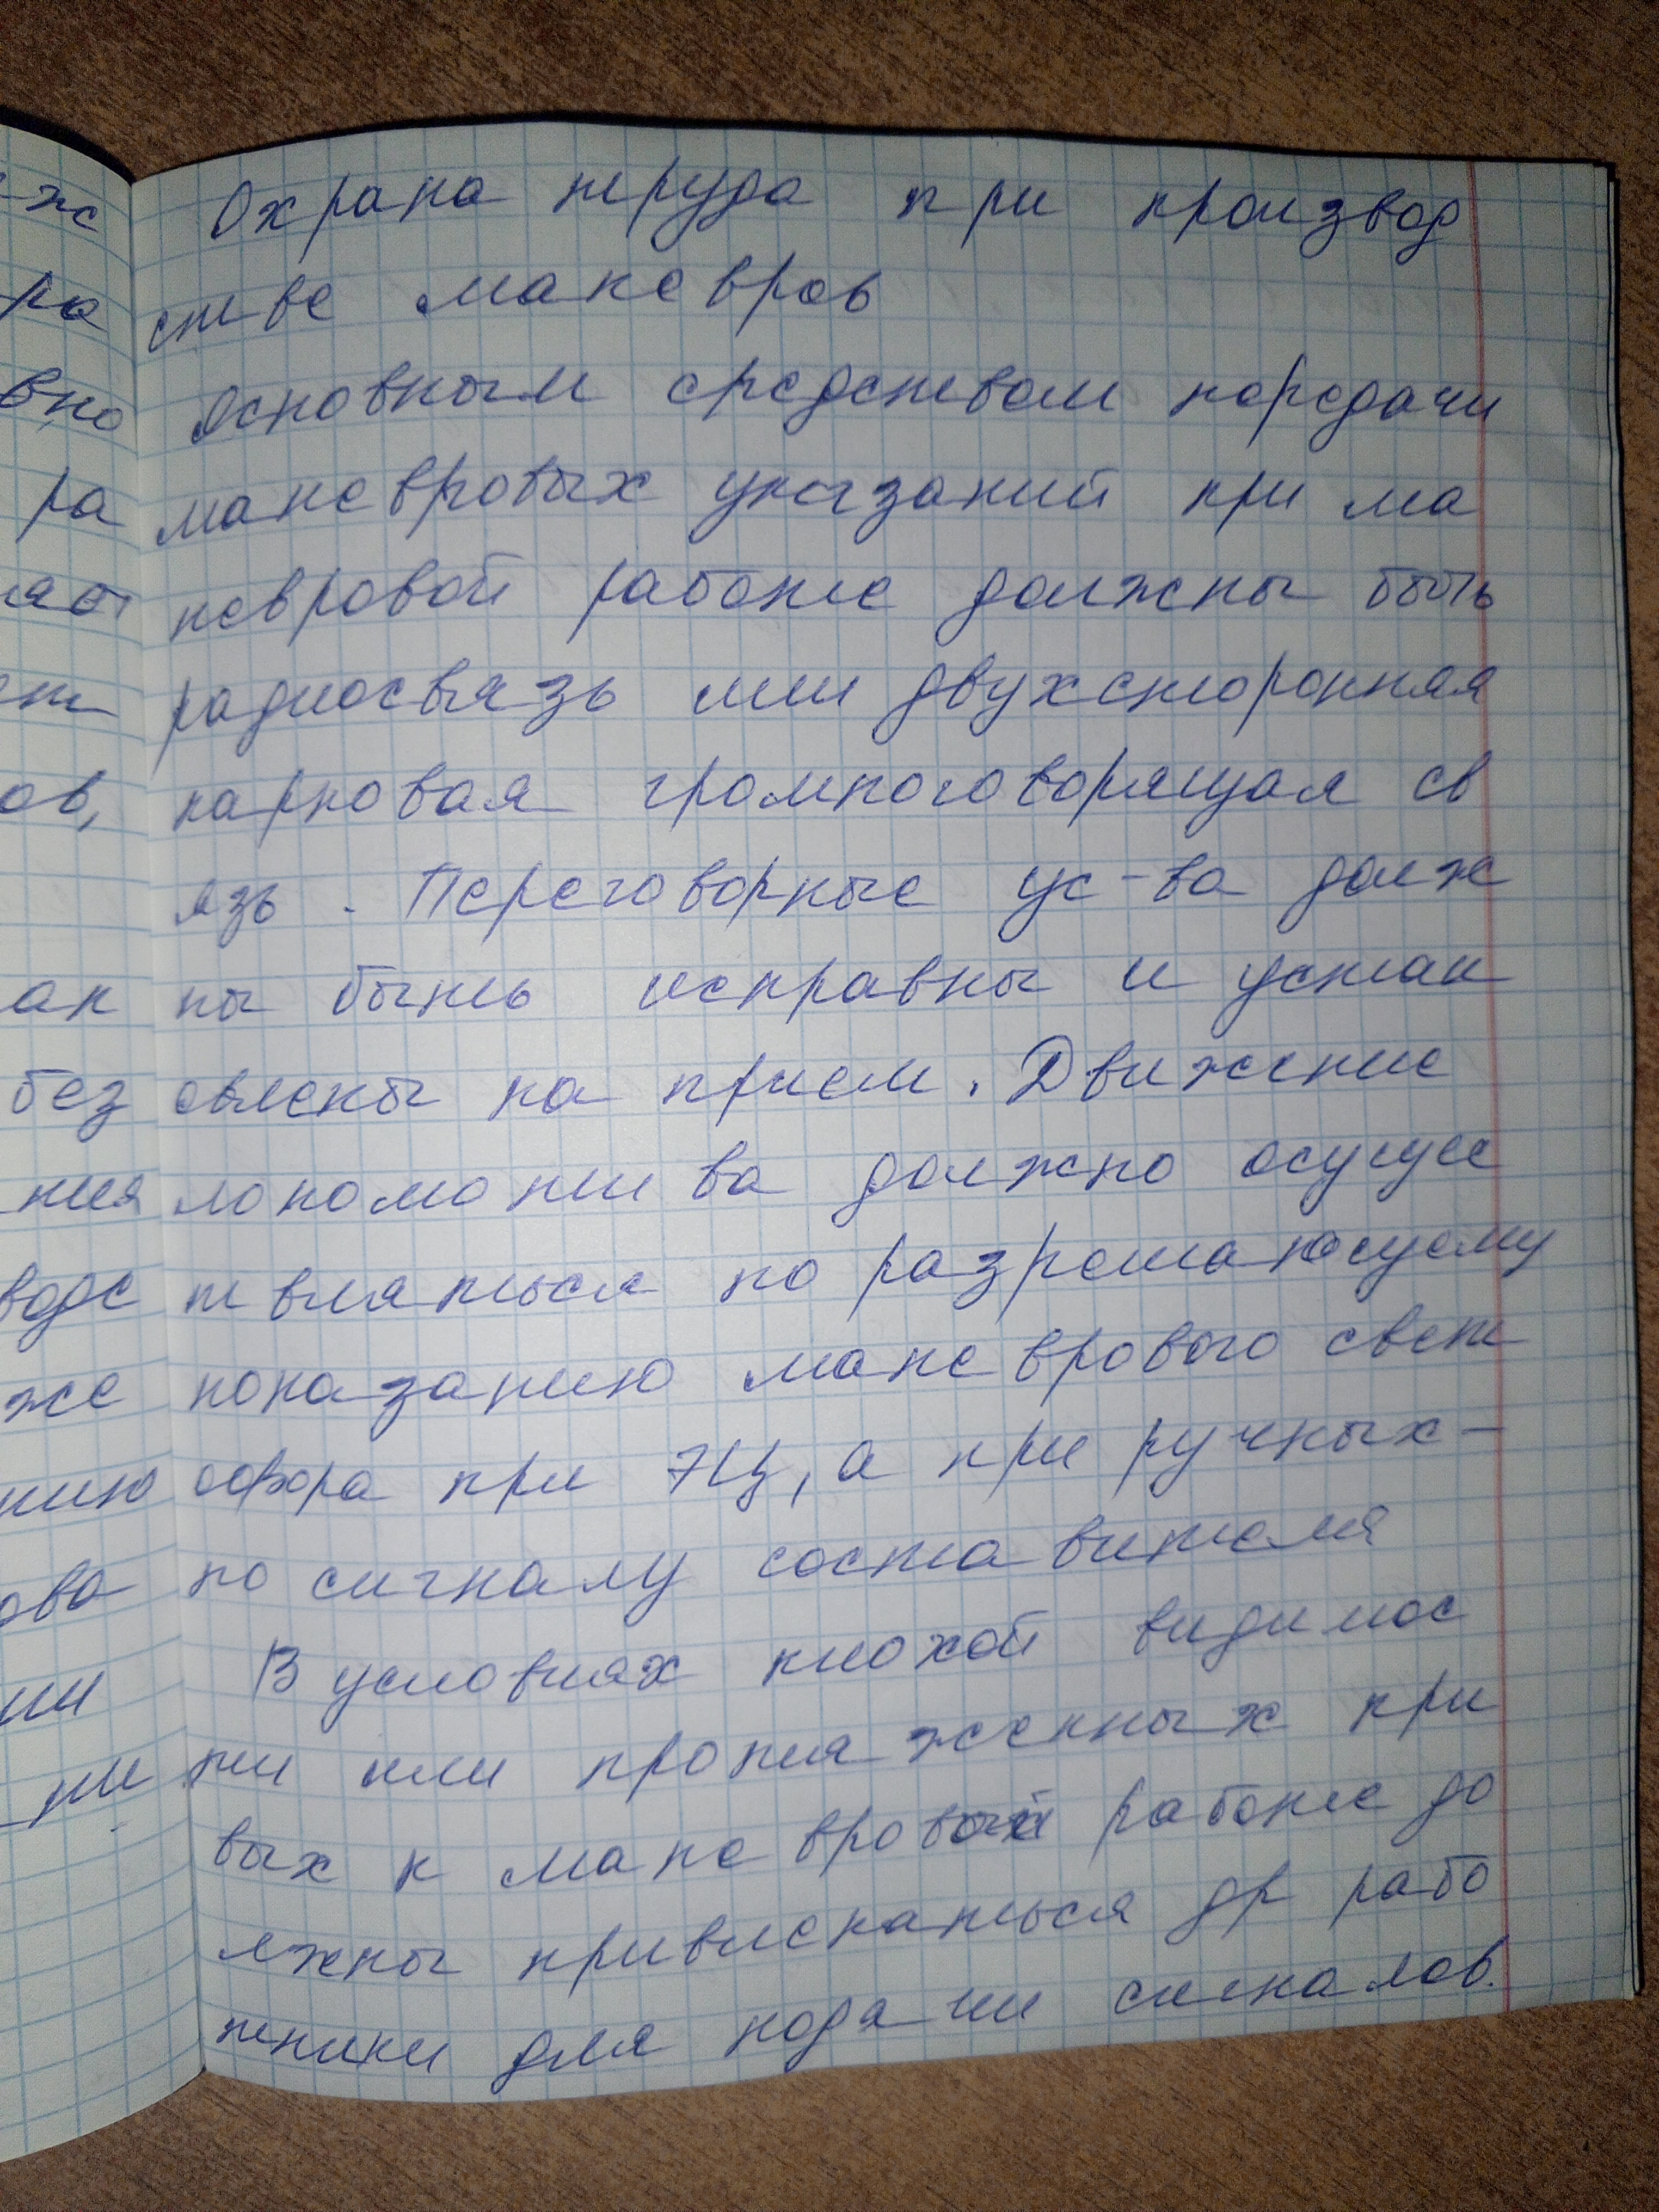 Охрана труда при производ
стве маневров
Основным средством передачи
маневровых указаний при ма
невровой работе должны быть
радиосвязь или двухсторонняя
парковая громкоговорящая св
язь. Переговорные ус-ва долж
ны быть исправны и устан
овлены на прием. Движение
локомотива должно осущес
твляться по разрешающему
показанию маневрового свет
офора при ЭЦ, а при ручных -
по сигналу составителя
В условиях плохой видимос
ти или протяженных при
вых к маневровой работе до
лжны привлекаться др рабо
тники для подачи сигналов.